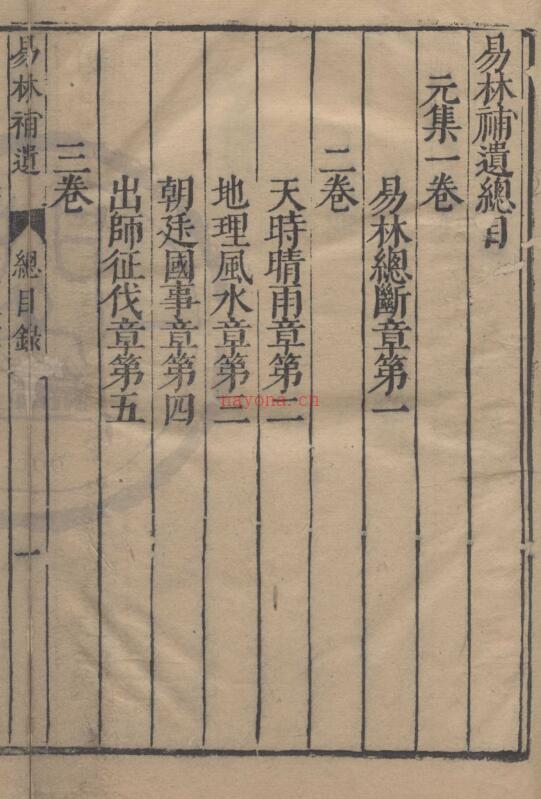 易林補遺總目
元集一卷
易林總斷章第一
二卷
天時晴雨章第二
地理風水章第三
朝廷國事章第四
出師征伐章第五
三卷
易林補遺 總目錄 一
nayona.cn